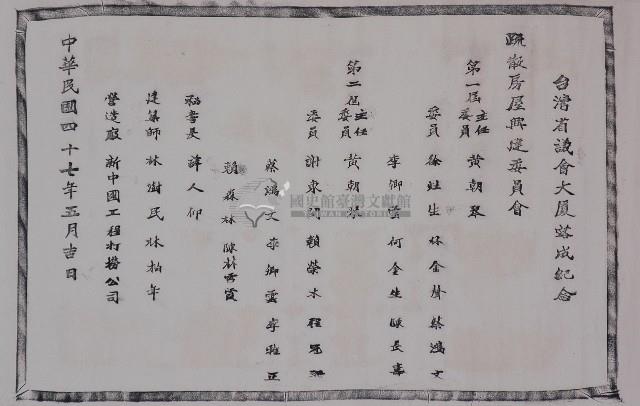 台灣省議會大厦落成紀念
疏散房屋興建委員會
第一屆主任委員 黃朝琴
委員 徐灶生 林金聲 蔡鴻文
李卿雲 何金生 陳長壽
第二屆主任委員 黃朝琴
委員 謝東閔 賴榮木
蔡鴻文 李卿雲 李雅正
賴森林 陳林雪霞
秘書長 薛人仰
建築師 林澍民 林柏年
營造廠 新中國工程打撈公司
中華民國四十七年五月吉日
國史館臺灣文獻館
TAIWAN HISTORICA